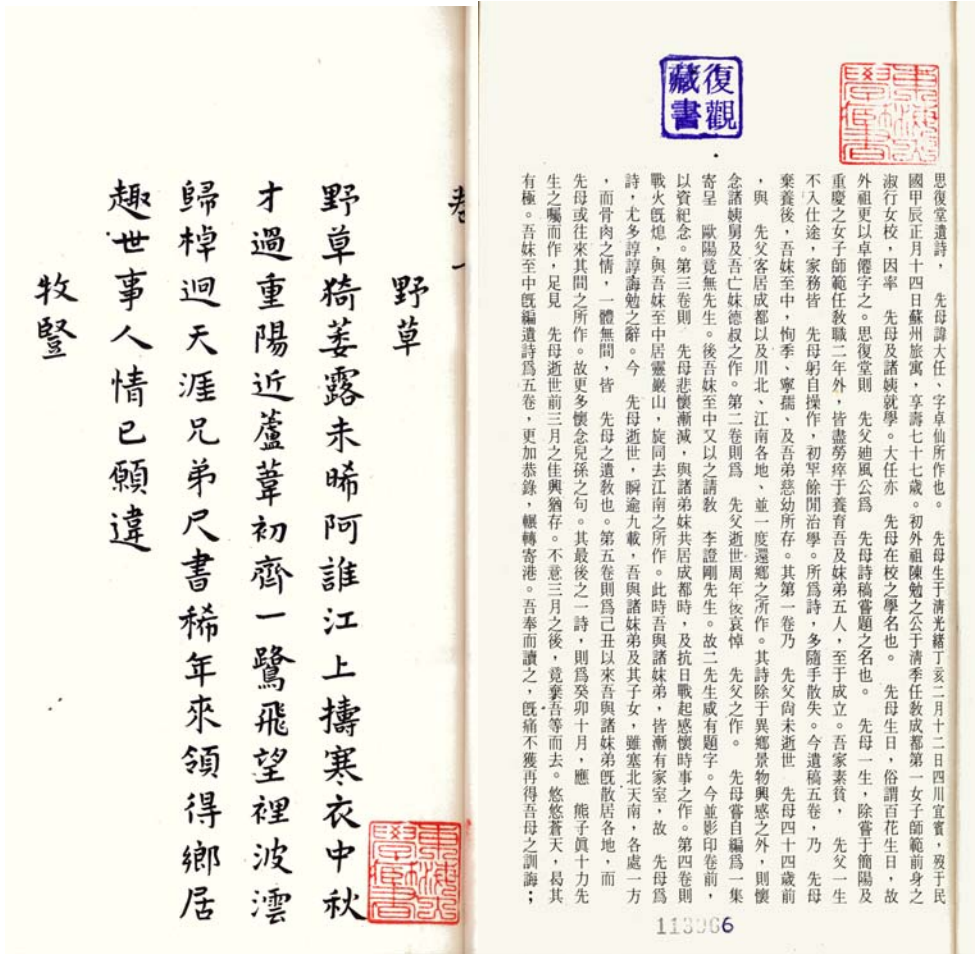 復觀
藏書
思復堂遺詩，　先母諱大任、字卓仙所作也。　先母生于清光緒丁亥二月十二日四川宜賓，歿于民
國甲辰正月十四日蘇州旅寓，享壽七十七歲。初外祖陳勉之公于清季任教成都第一女子師範前身之
淑行女校，因率　先母及諸姨就學。大任亦　先母在校之學名也。　先母生日，俗謂百花生日，故
外祖更以卓僊字之。思復堂則　先父廸風公爲　先母詩稿嘗題之名也。　先母一生，除嘗于簡陽及
重慶之女子師範任教職二年外，皆盡勞瘁于養育吾及妹弟五人，至于成立。吾家素貧，　先父一生
不入仕途，家務皆　先母躬自操作，初罕餘閒治學。所爲詩，多隨手散失。今遺稿五卷，乃　先母
棄養後，吾妹至中，恂季、寧孺、及吾弟慈幼所存。其第一卷乃　先父尙未逝世　先母四十四歲前
，與　先父客居成都以及川北、江南各地、並一度還鄉之所作。其詩除于異鄉景物興感之外，則懷
念諸姨舅及吾亡妹德叔之作。第二卷則爲　先父逝世周年後哀悼　先父之作。　先母嘗自編爲一集
寄呈　歐陽竟無先生。後吾妹至中又以之請教　李證剛先生。故二先生咸有題字。今並影印卷前，
以資紀念。第三卷則　先母悲懷漸減，與諸弟妹共居成都時，及抗日戰起感懷時事之作。第四卷則
戰火旣熄，與吾妹至中居靈巖山，旋同去江南之所作。此時吾與諸妹弟，皆漸有家室，故　先母爲
詩，尤多諄諄誨勉之辭。今　先母逝世，瞬逾九載，吾與諸妹弟及其子女，雖塞北天南，各處一方
，而骨肉之情，一體無間，皆　先母之遺敎也。第五卷則爲己丑以來吾與諸妹弟旣散居各地，而
先母或往來其間之所作。故更多懷念兒孫之句。其最後之一詩，則爲癸卯十月，應　熊子眞十力先
生之囑而作，足見　先母逝世前三月之佳興猶存。不意三月之後，竟棄吾等而去。悠悠蒼天，曷其
有極。吾妹至中旣編遺詩爲五卷，更加恭錄，輾轉寄港。吾奉而讀之，旣痛不獲再得吾母之訓誨；
卷一
野草
野草猗萎露未晞阿誰江上擣寒衣中秋
才過重陽近蘆葦初齊一鷺飛望裡波澐
歸棹迥天涯兄弟尺書稀年來領得鄉居
趣世事人情已願違
牧豎